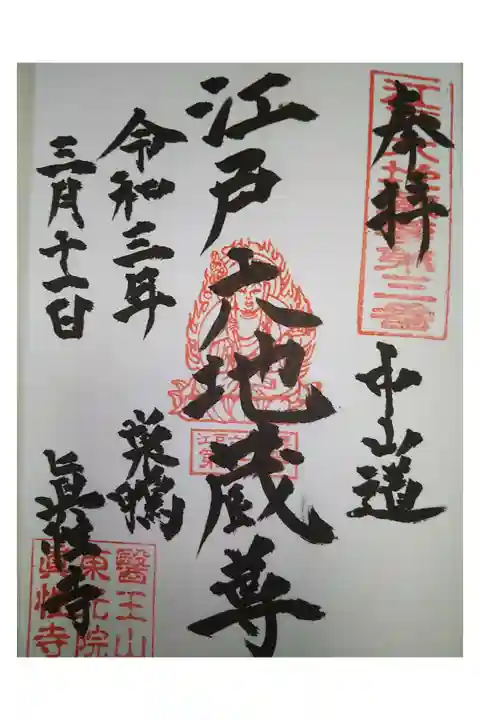 奉拝
中山道
江戸六地蔵尊
令和三年
三月十一日
巣鴨
眞性寺
醫王山
東光院
眞性寺